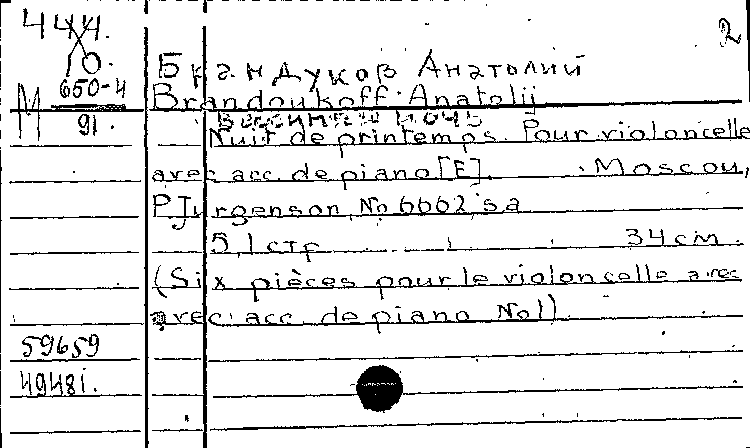 444.
10.
2
Брандуков Анатолий
М 650-4
91.
Brandoukoff Anatolij
Весенняя ночь
Nuit de printemps. Pour violoncelle
avec acc. de piano [E]. Moscou,
P. Jurgenson, No 6662, s a
5, 1 стр 34 см.
(Six pièces pour le violoncelle avec
avec acc. de piano No 1)
59659
49481.